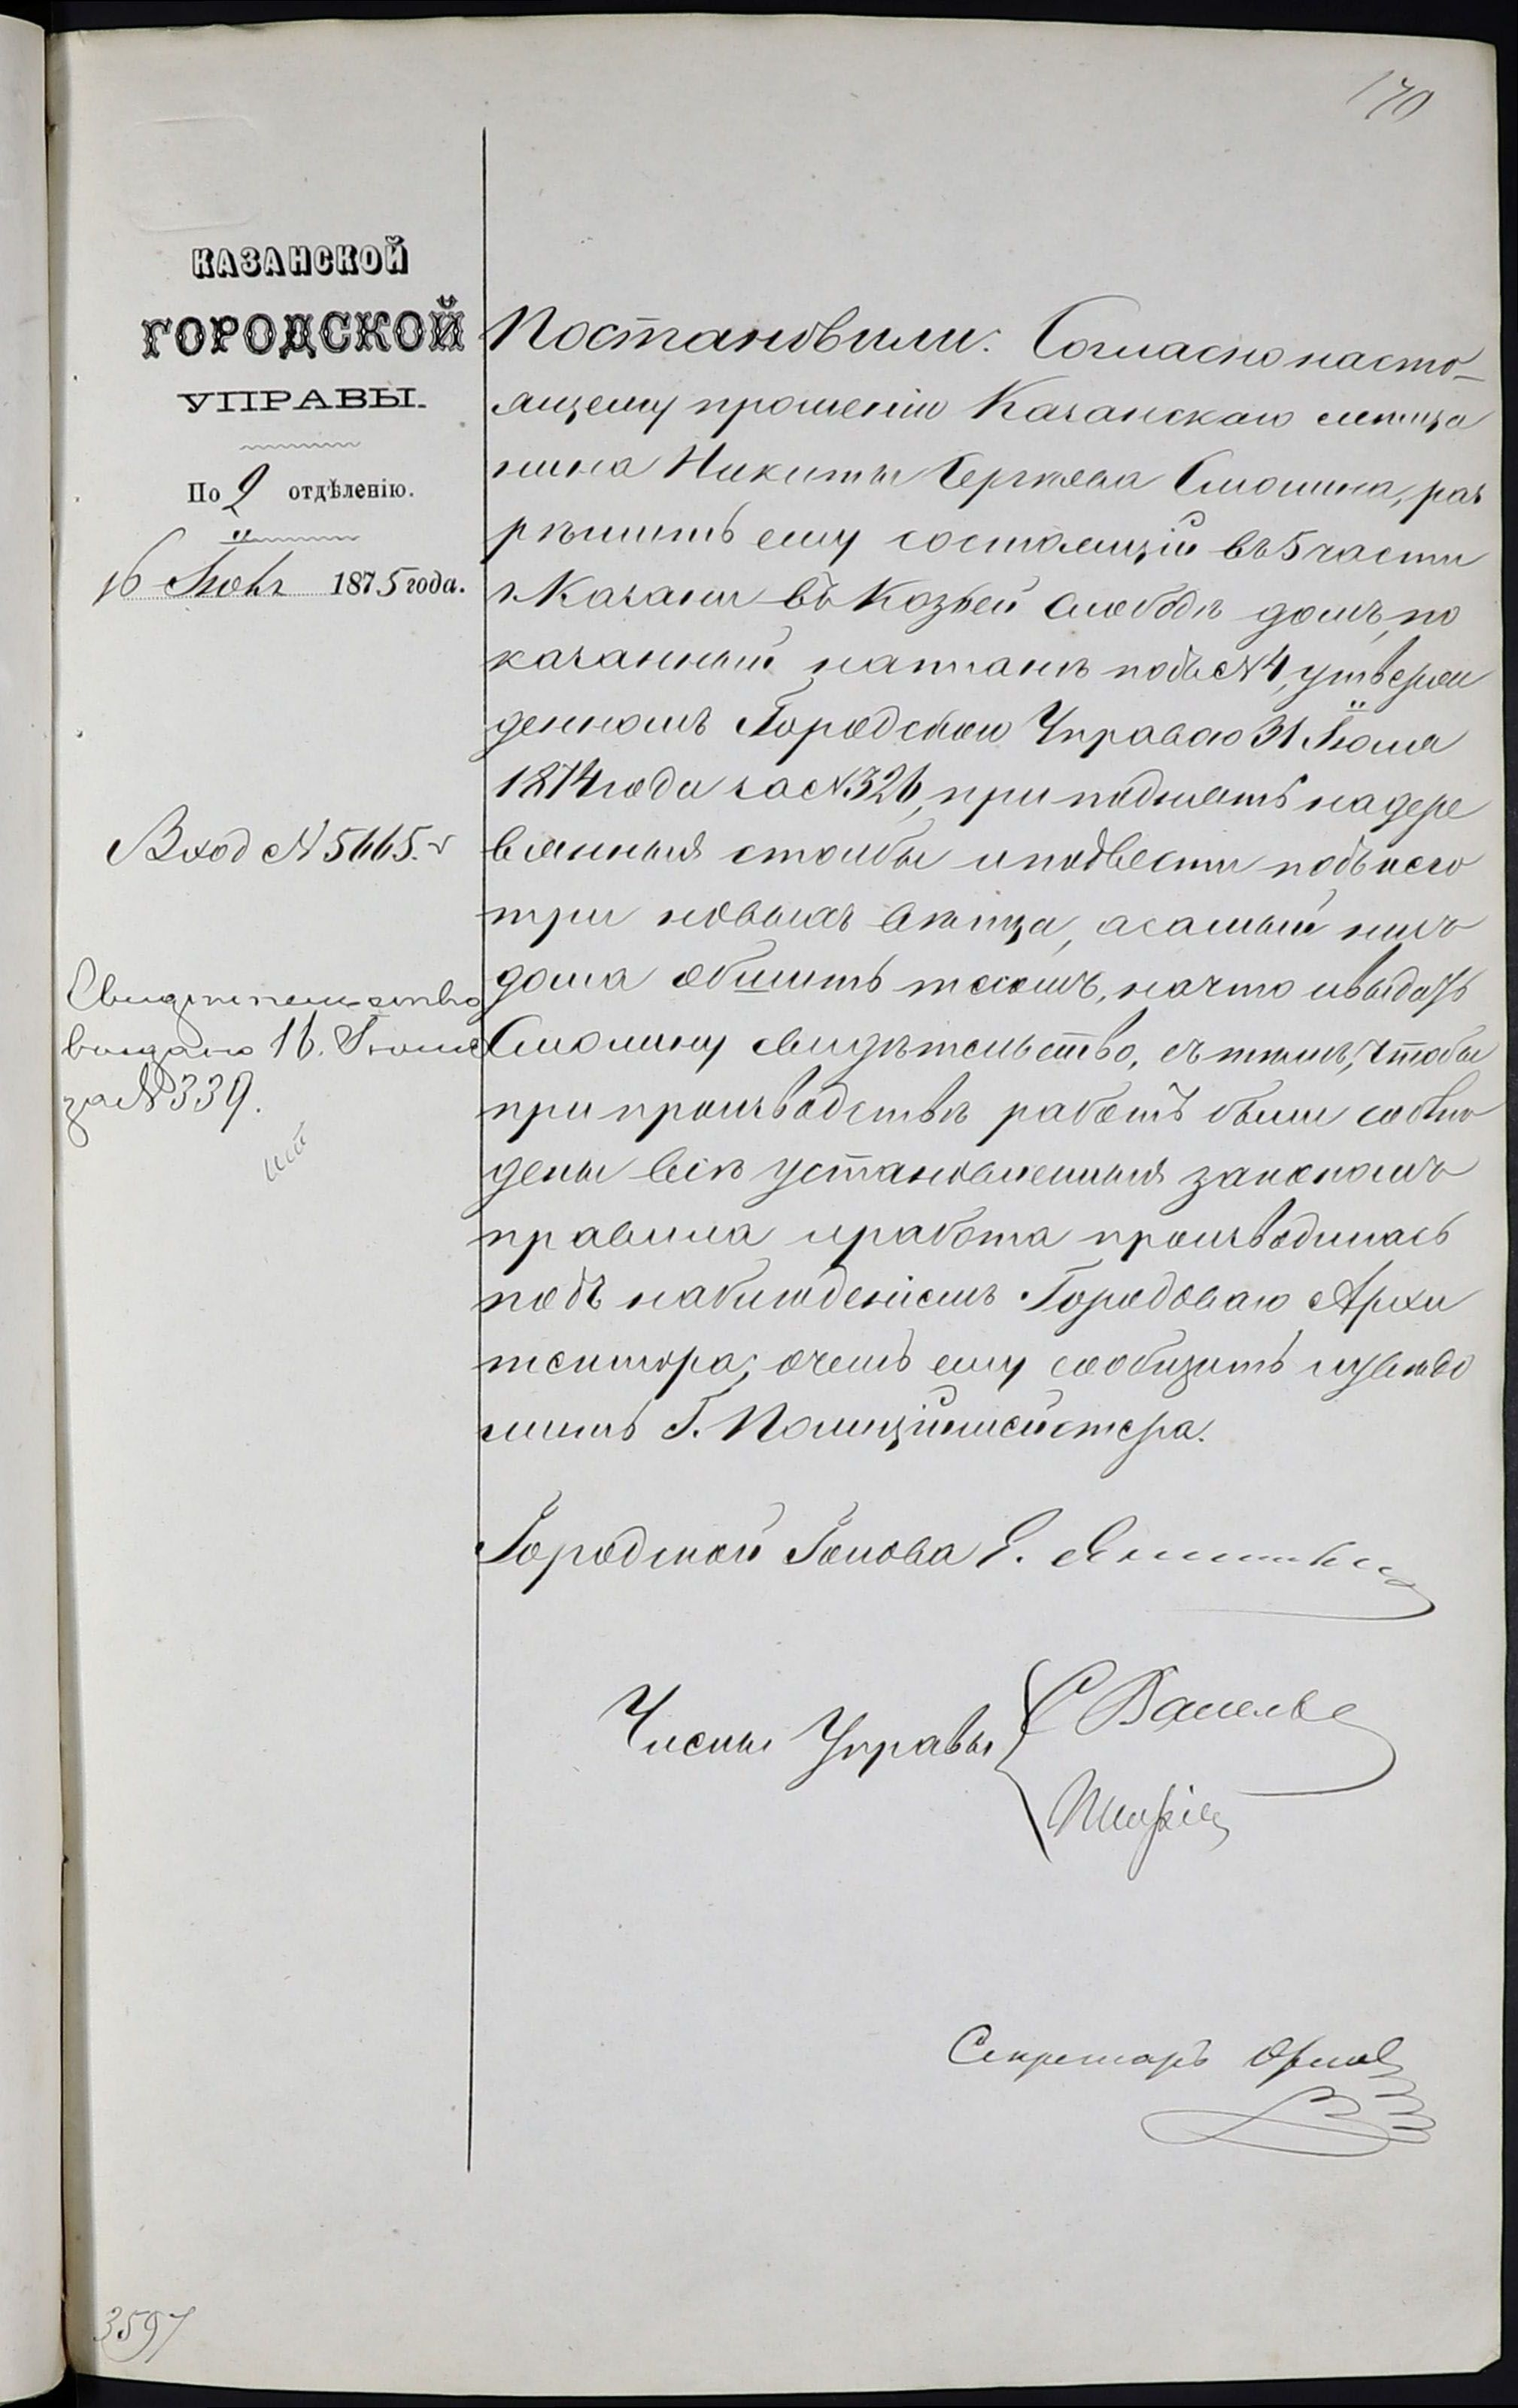 170
КАЗАНСКОЙ
ГОРОДСКОЙ
УПРАВЫ.
По 2 отдѣленію.
16 Іюня 1875 года.
Вход № 5665.
Свидѣтельство
выдано 16. Іюня
за № 339.
Постановили: Согласно насто-
ящему прошенію Казанскаго мѣща
нина Никиты Сергѣева Смолина, раз
рѣшить ему состоящій въ 5 части
г. Казани въ Козьей слободѣ домъ, по
казанный на планѣ подъ № 4, утверж
денномъ Городскою Управою 31 Іюля
1874 года за № 326, приподнять на дере
вянныя столбы и подвести подъ него
три новыхъ вѣнца, а самый низъ
дома обшить тесомъ, на что и выдать
Смолину свидѣтельство, съ тѣмъ, чтобы
при производствѣ работъ были соблю
дены всѣ установленныя закономъ
правила и работа производилась
подъ наблюденіемъ Городоваго Архи
тектора; о чемъ ему сообщить и увѣдо
мить Г. Полиціймейстера.
Городской Голова Е.
Члены Управы
Секретарь Орлов
3597